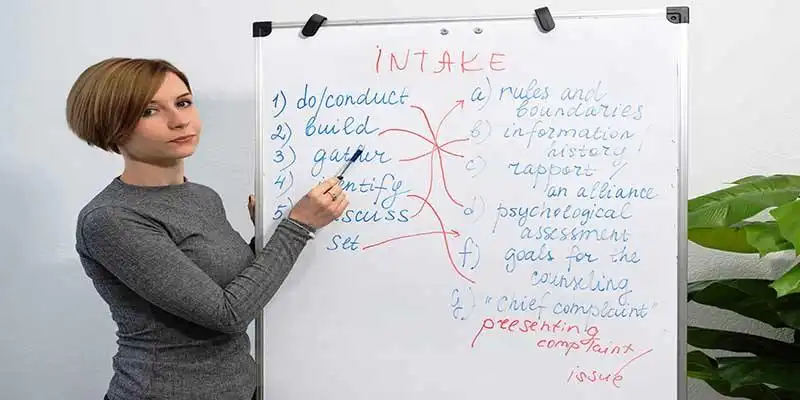 INTAKE
1) do/conduct
2) build
3) gather
4) identify
5) discuss
set
a) rules and
boundaries
b) information/
history
c) rapport/
an alliance
d) psychological
assessment
f) goals for the
counseling
g) "chief complaint"
presenting
complaint
issue